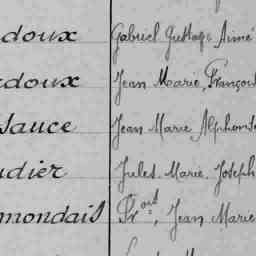 doux Gabriel Gustave Aimé
doux Jean Marie, François
sauce Jean Marie Alphonse
udier Jules Marie Joseph
mondais Fr.ois, Jean Marie